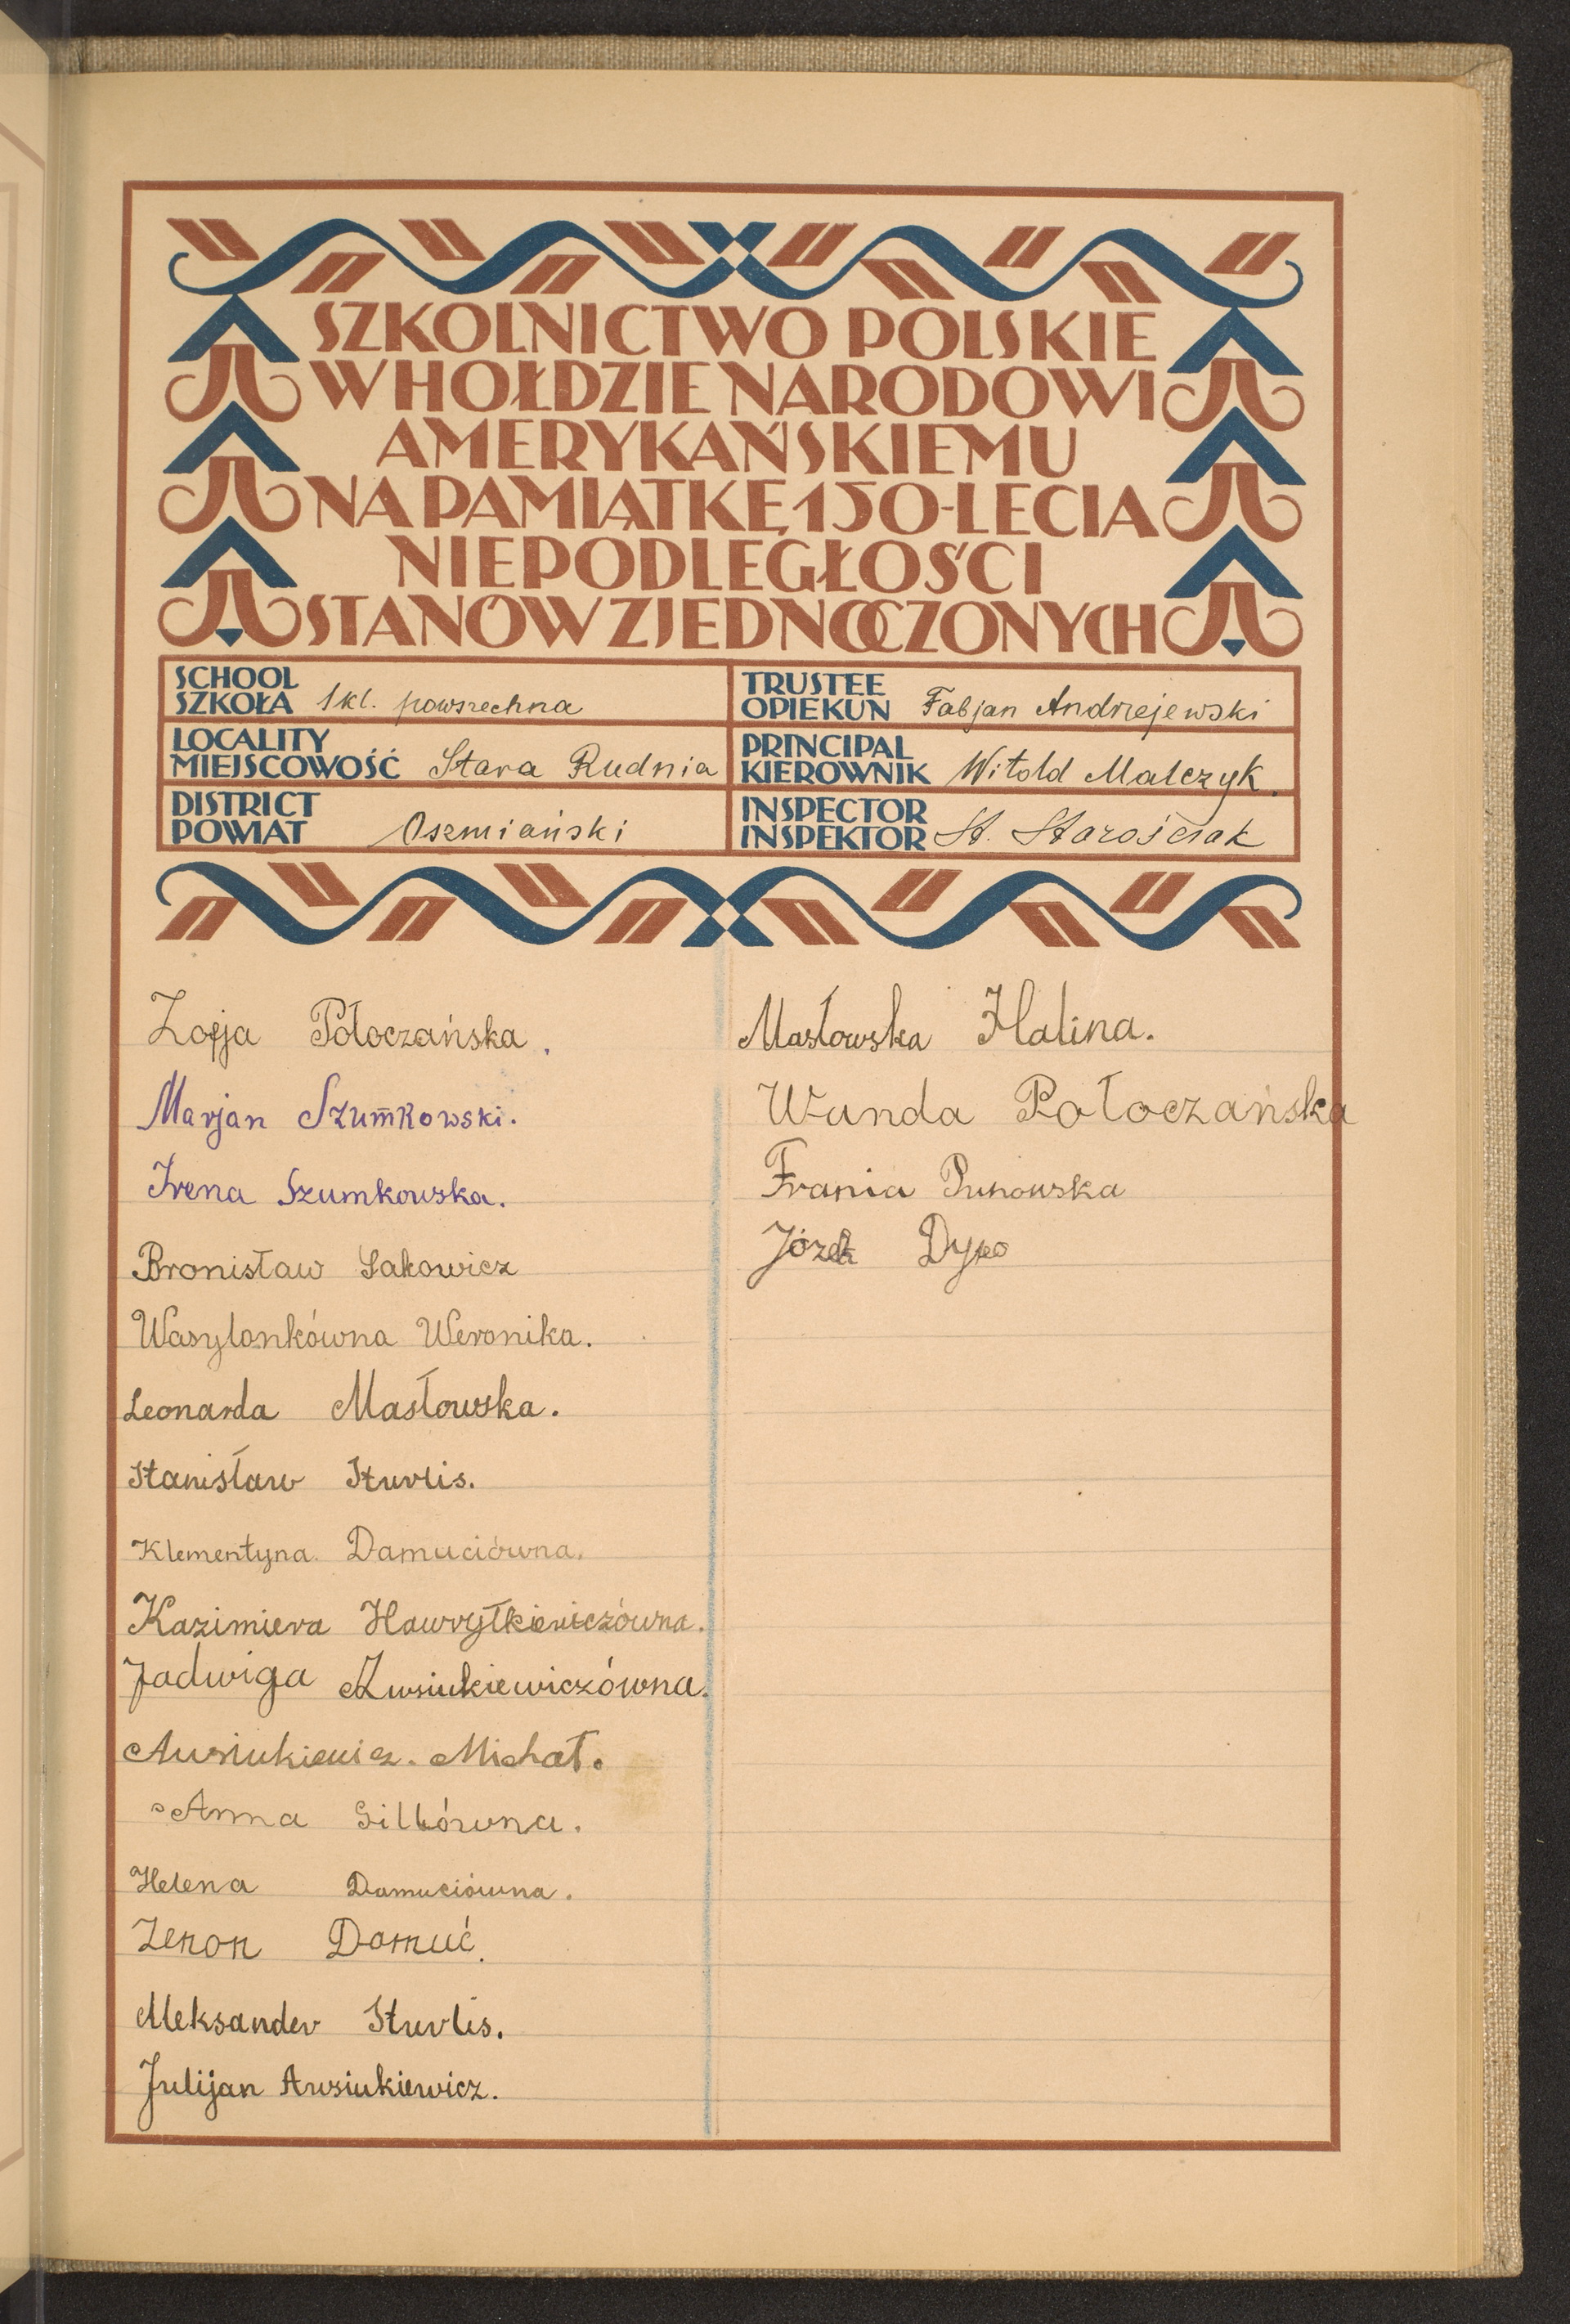 SZKOLNICTWO POLSKIE
W HOŁDZIE NARODOWI
AMERYKAŃSKIEMU
NA PAMIĄTKĘ 150-LECIA
NIEPODLEGŁOŚCI
STANÓW ZJEDNOCZONYCH
SCHOOL
SZKOŁA 1 kl. powszechna
TRUSTEE
OPIEKUN Fabjan Andrzejewski
LOCALITY
MIEJSCOWOŚĆ Stara Rudnia
PRINCIPAL
KIEROWNIK Witold Malczyk.
DISTRICT
POWIAT Oszmiański
INSPECTOR
INSPEKTOR St. Starościak
Zofja Połoczańska.
Marjan Szumkowski.
Irena Szumkowska.
Bronisław Sakowicz
Wasylonkówna Weronika.
Leonarda Masłowska.
Stanisław Sturlis.
Klementyna. Damuciówna.
Kazimiera Hawryłkiewiczówna.
Jadwiga Awsiukiewiczówna.
Awsiukiewicz. Michał.
Anna
Helena Damuciówna.
Zenon Damuć.
Aleksander Sturlis.
Julijan Awsiukiewicz.
Masłowska Halina.
Wanda Połoczańska
Frania
Józek